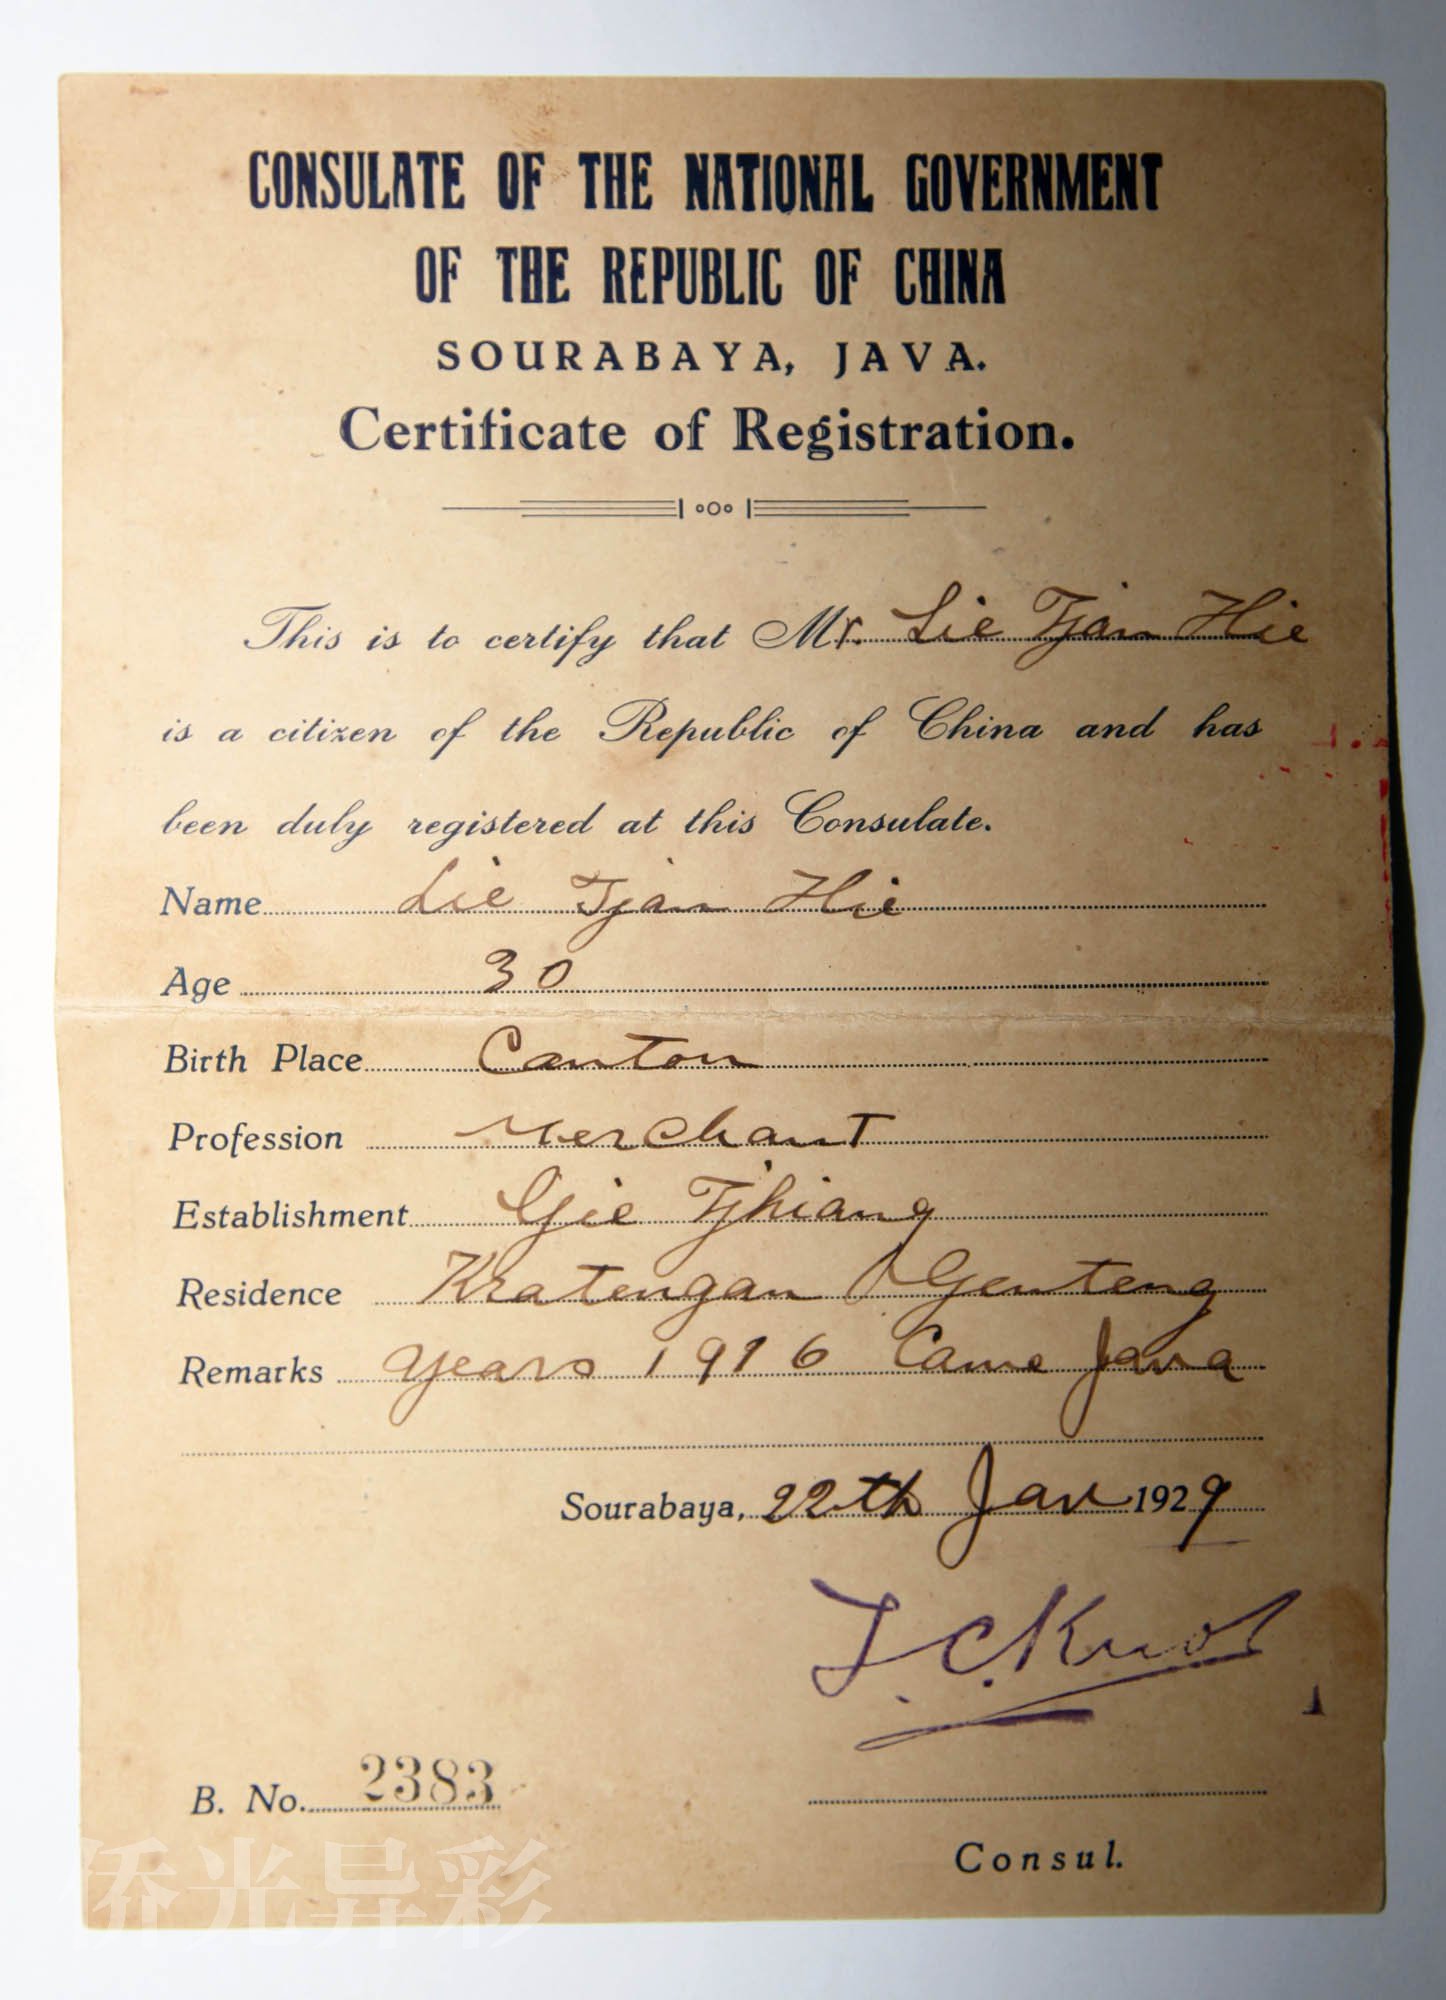 CONSULATE OF THE NATIONAL GOVERNMENT
OF THE REPUBLIC OF CHINA
SOURABAYA, JAVA.
Certificate of Registration.
This is to certify that Mr. Lie Tjan Hie
is a citizen of the Republic of China and has
been duly registered at this Consulate.
Name Lie Tjan Hie
Age 30
Birth Place Canton
Profession Merchant
Establishment Gie Tjhiang
Residence Kratengan Genteng
Remarks years 1916 Came Java
Sourabaya, 22th Jan 1929
B. No. 2383
Consul.
侨光异彩